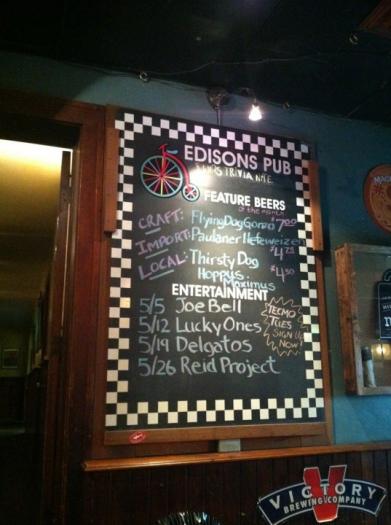 EDISONS PUB
TRIVIA NITE
FEATURE BEERS
of the month
CRAFT: Flying Dog Gonzo $7.00
IMPORT: Paulaner Hefeweizen $4.75
LOCAL: Thirsty Dog
Hoppus Maximus $4.50
ENTERTAINMENT
5/5 Joe Bell
5/12 Lucky Ones
5/19 Delgatos
5/26 Reid Project
TECMO
TUES
SIGN UP
NOW!
VICTORY
BREWING COMPANY